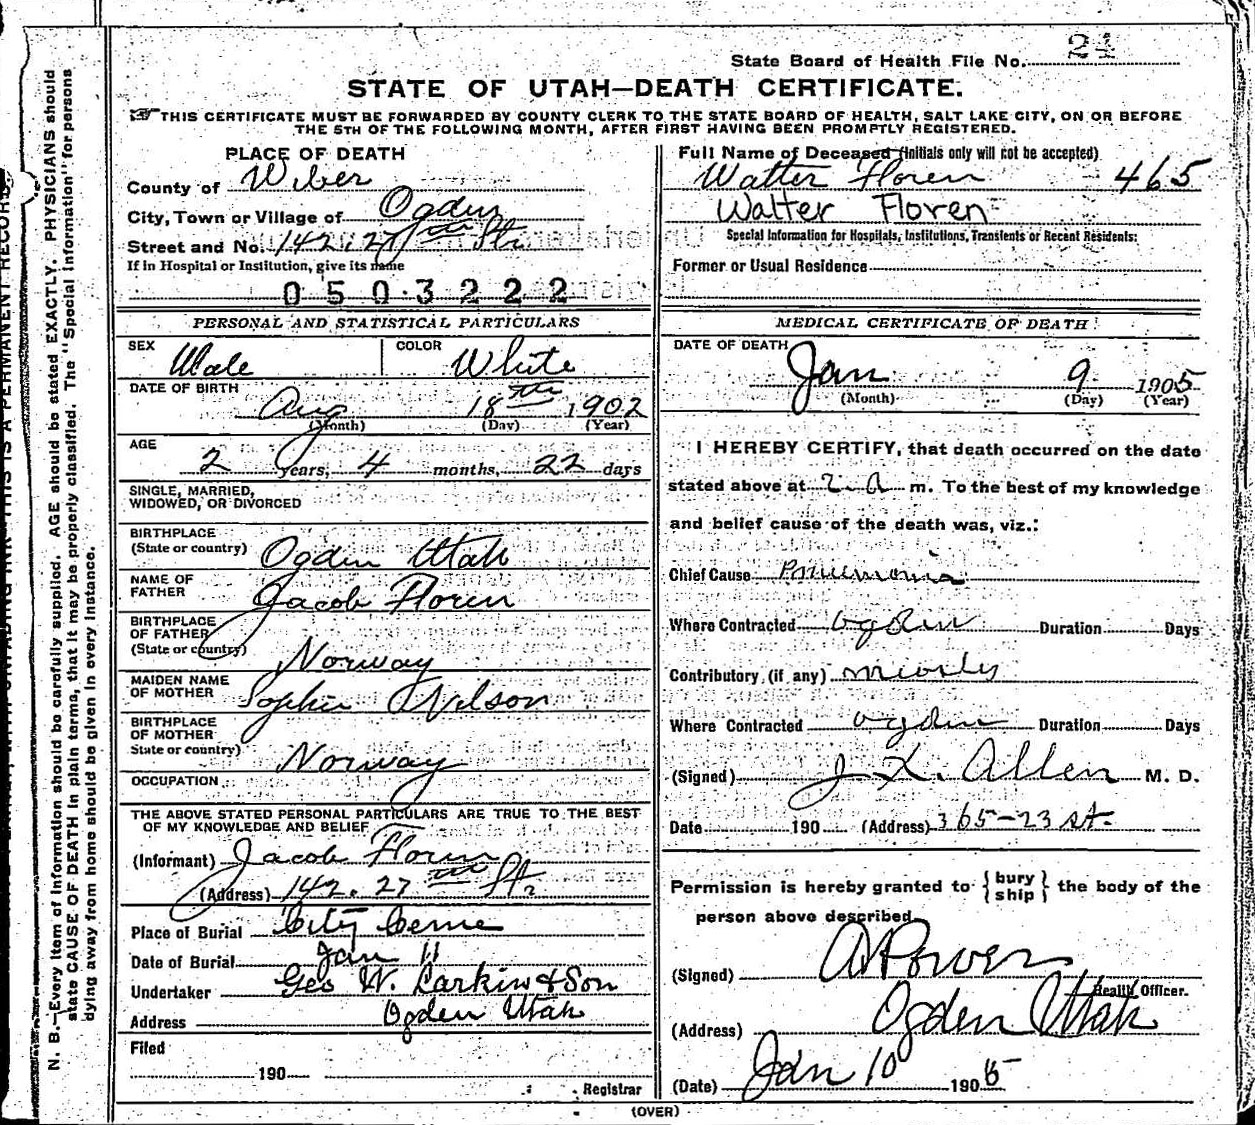 State Board of Health File No. 21
STATE OF UTAH—DEATH CERTIFICATE.
☞THIS CERTIFICATE MUST BE FORWARDED BY COUNTY CLERK TO THE STATE BOARD OF HEALTH, SALT LAKE CITY, ON OR BEFORE
THE 5TH OF THE FOLLOWING MONTH, AFTER FIRST HAVING BEEN PROMPTLY REGISTERED.
PLACE OF DEATH
County of Weber
City, Town or Village of Ogden
Street and No. 142. 27th Str
If in Hospital or Institution, give its name
0503222
PERSONAL AND STATISTICAL PARTICULARS
SEX Male COLOR White
DATE OF BIRTH
Aug 18th 1902
(Month) (Day) (Year)
AGE
2 years, 4 months, 22 days
SINGLE, MARRIED,
WIDOWED, OR DIVORCED
BIRTHPLACE
(State or country) Ogden Utah
NAME OF
FATHER Jacob Floren
BIRTHPLACE
OF FATHER
(State or country) Norway
MAIDEN NAME
OF MOTHER Sophie Nelson
BIRTHPLACE
OF MOTHER
State or country) Norway
OCCUPATION
THE ABOVE STATED PERSONAL PARTICULARS ARE TRUE TO THE BEST
OF MY KNOWLEDGE AND BELIEF
(Informant) Jacob Floren
(Address) 142. 27th Str
Place of Burial City Ceme
Date of Burial Jan 11
Undertaker Geo W. Larkin & Son
Address Ogden Utah
Filed
190
Registrar
Full Name of Deceased (Initials only will not be accepted)
Walter Floren 465
Walter Floren
Special Information for Hospitals, Institutions, Transients or Recent Residents:
Former or Usual Residence
MEDICAL CERTIFICATE OF DEATH
DATE OF DEATH
Jan 9 1905
(Month) (Day) (Year)
I HEREBY CERTIFY, that death occurred on the date
stated above at 2 a m. To the best of my knowledge
and belief cause of the death was, viz.:
Chief Cause Pnuemonia
Where Contracted Ogden Duration Days
Contributory (if any) Measles
Where Contracted Ogden Duration Days
(Signed) Allen M. D.
Date 190 (Address) 365-23 st.
Permission is hereby granted to {bury
ship} the body of the
person above described.
(Signed) A Power
Health Officer.
(Address) Ogden Utah
(Date) Jan 10 1905
(OVER)
N. B.—Every item of information should be carefully supplied. AGE should be stated EXACTLY. PHYSICIANS should
state CAUSE OF DEATH in plain terms, that it may be properly classified. The "Special Information" for persons
dying away from home should be given in every instance.
THIS IS A PERMANENT RECORD